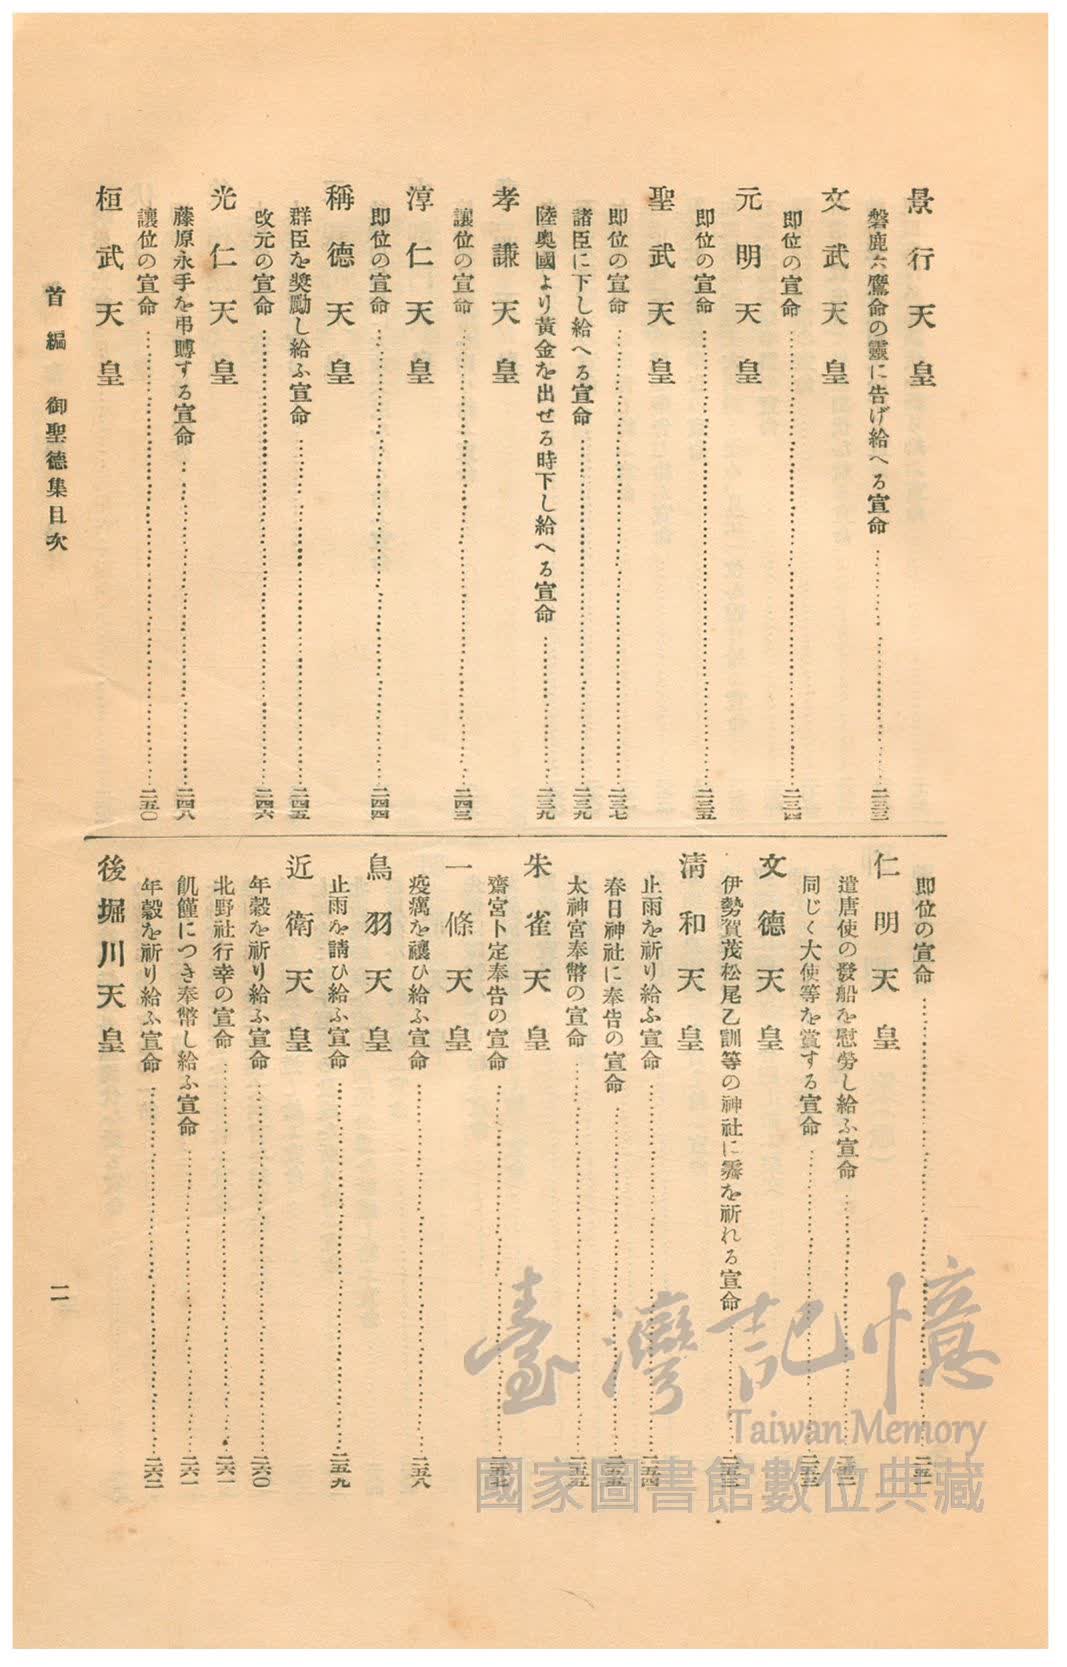 景行天皇
磐鹿六鴈命の靈に告げ給へる宣命……二三三
文武天皇
即位の宣命……二三四
元明天皇
即位の宣命……二三五
聖武天皇
即位の宣命……二三七
諸臣に下し給へる宣命……二三九
陸奥國より黃金を出せる時下し給へる宣命……二三九
孝謙天皇
讓位の宣命……二四三
淳仁天皇
即位の宣命……二四四
稱德天皇
群臣を奬勵し給ふ宣命……二四五
改元の宣命……二四六
光仁天皇
藤原永手を弔賻する宣命……二四八
讓位の宣命……二五〇
桓武天皇
即位の宣命……二五一
仁明天皇
遣唐使の發船を慰勞し給ふ宣命
同じく大使等を賞する宣命……二五三
文德天皇
伊勢賀茂松尾乙訓等の神社に霽を祈れる宣命……二五三
淸和天皇
止雨を祈り給ふ宣命……二五四
春日神社に奉告の宣命……二五五
太神宮奉幣の宣命……二五五
朱雀天皇
齋宮卜定奉告の宣命……二五七
一條天皇
疫癘を禳ひ給ふ宣命……二五八
鳥羽天皇
止雨を請ひ給ふ宣命……二五九
近衞天皇
年穀を祈り給ふ宣命……二六〇
北野社行幸の宣命……二六一
飢饉につき奉幣し給ふ宣命……二六一
年穀を祈り給ふ宣命……二六二
後堀川天皇
首編 御聖德集目次
二
臺灣記憶
Taiwan Memory
國家圖書館數位典藏